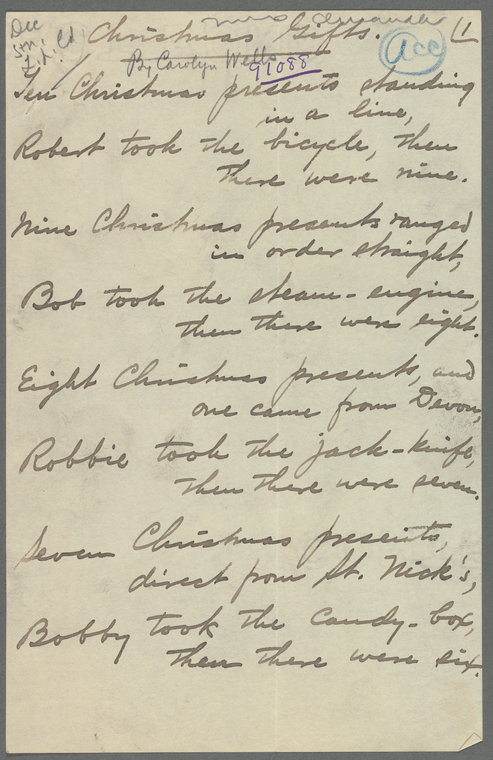 Dec
Christmas Gifts.
1
acc
By Carolyn Wells
91088
Ten Christmas presents standing
in a line,
Robert took the bicycle, then
there were nine.
Nine Christmas presents ranged
in order straight,
Bob took the steam-engine,
then there were eight.
Eight Christmas presents, and
one came from Devon,
Robbie took the jack-knife,
then there were seven.
Seven Christmas presents,
direct from St. Nick's,
Bobby took the candy-box,
then there were six.